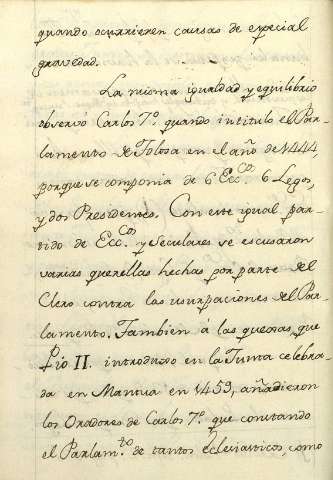 quando ocurrieren causas de especial
gravedad.
La misma igualdad y equilibrio
observó Carlos 7.º quando intituló el Par-
lamento de Tolosa en el año de 1444,
porque se componia de 6 Ecc.cos 6 Legos,
y dos Presidentes. Con este igual par-
tido de Ecc.cos y Seculares se escusaron
varias querellas hechas por parte del
Clero contra las usurpaciones del Par-
lamento. Tambien á las quexas, que
Pio II. introduxo en la Junta celebra-
da en Mantua en 1459, añadieron
los Oradores de Carlos 7.º que constando
el Parlam.to de tantos Eclesiasticos, como